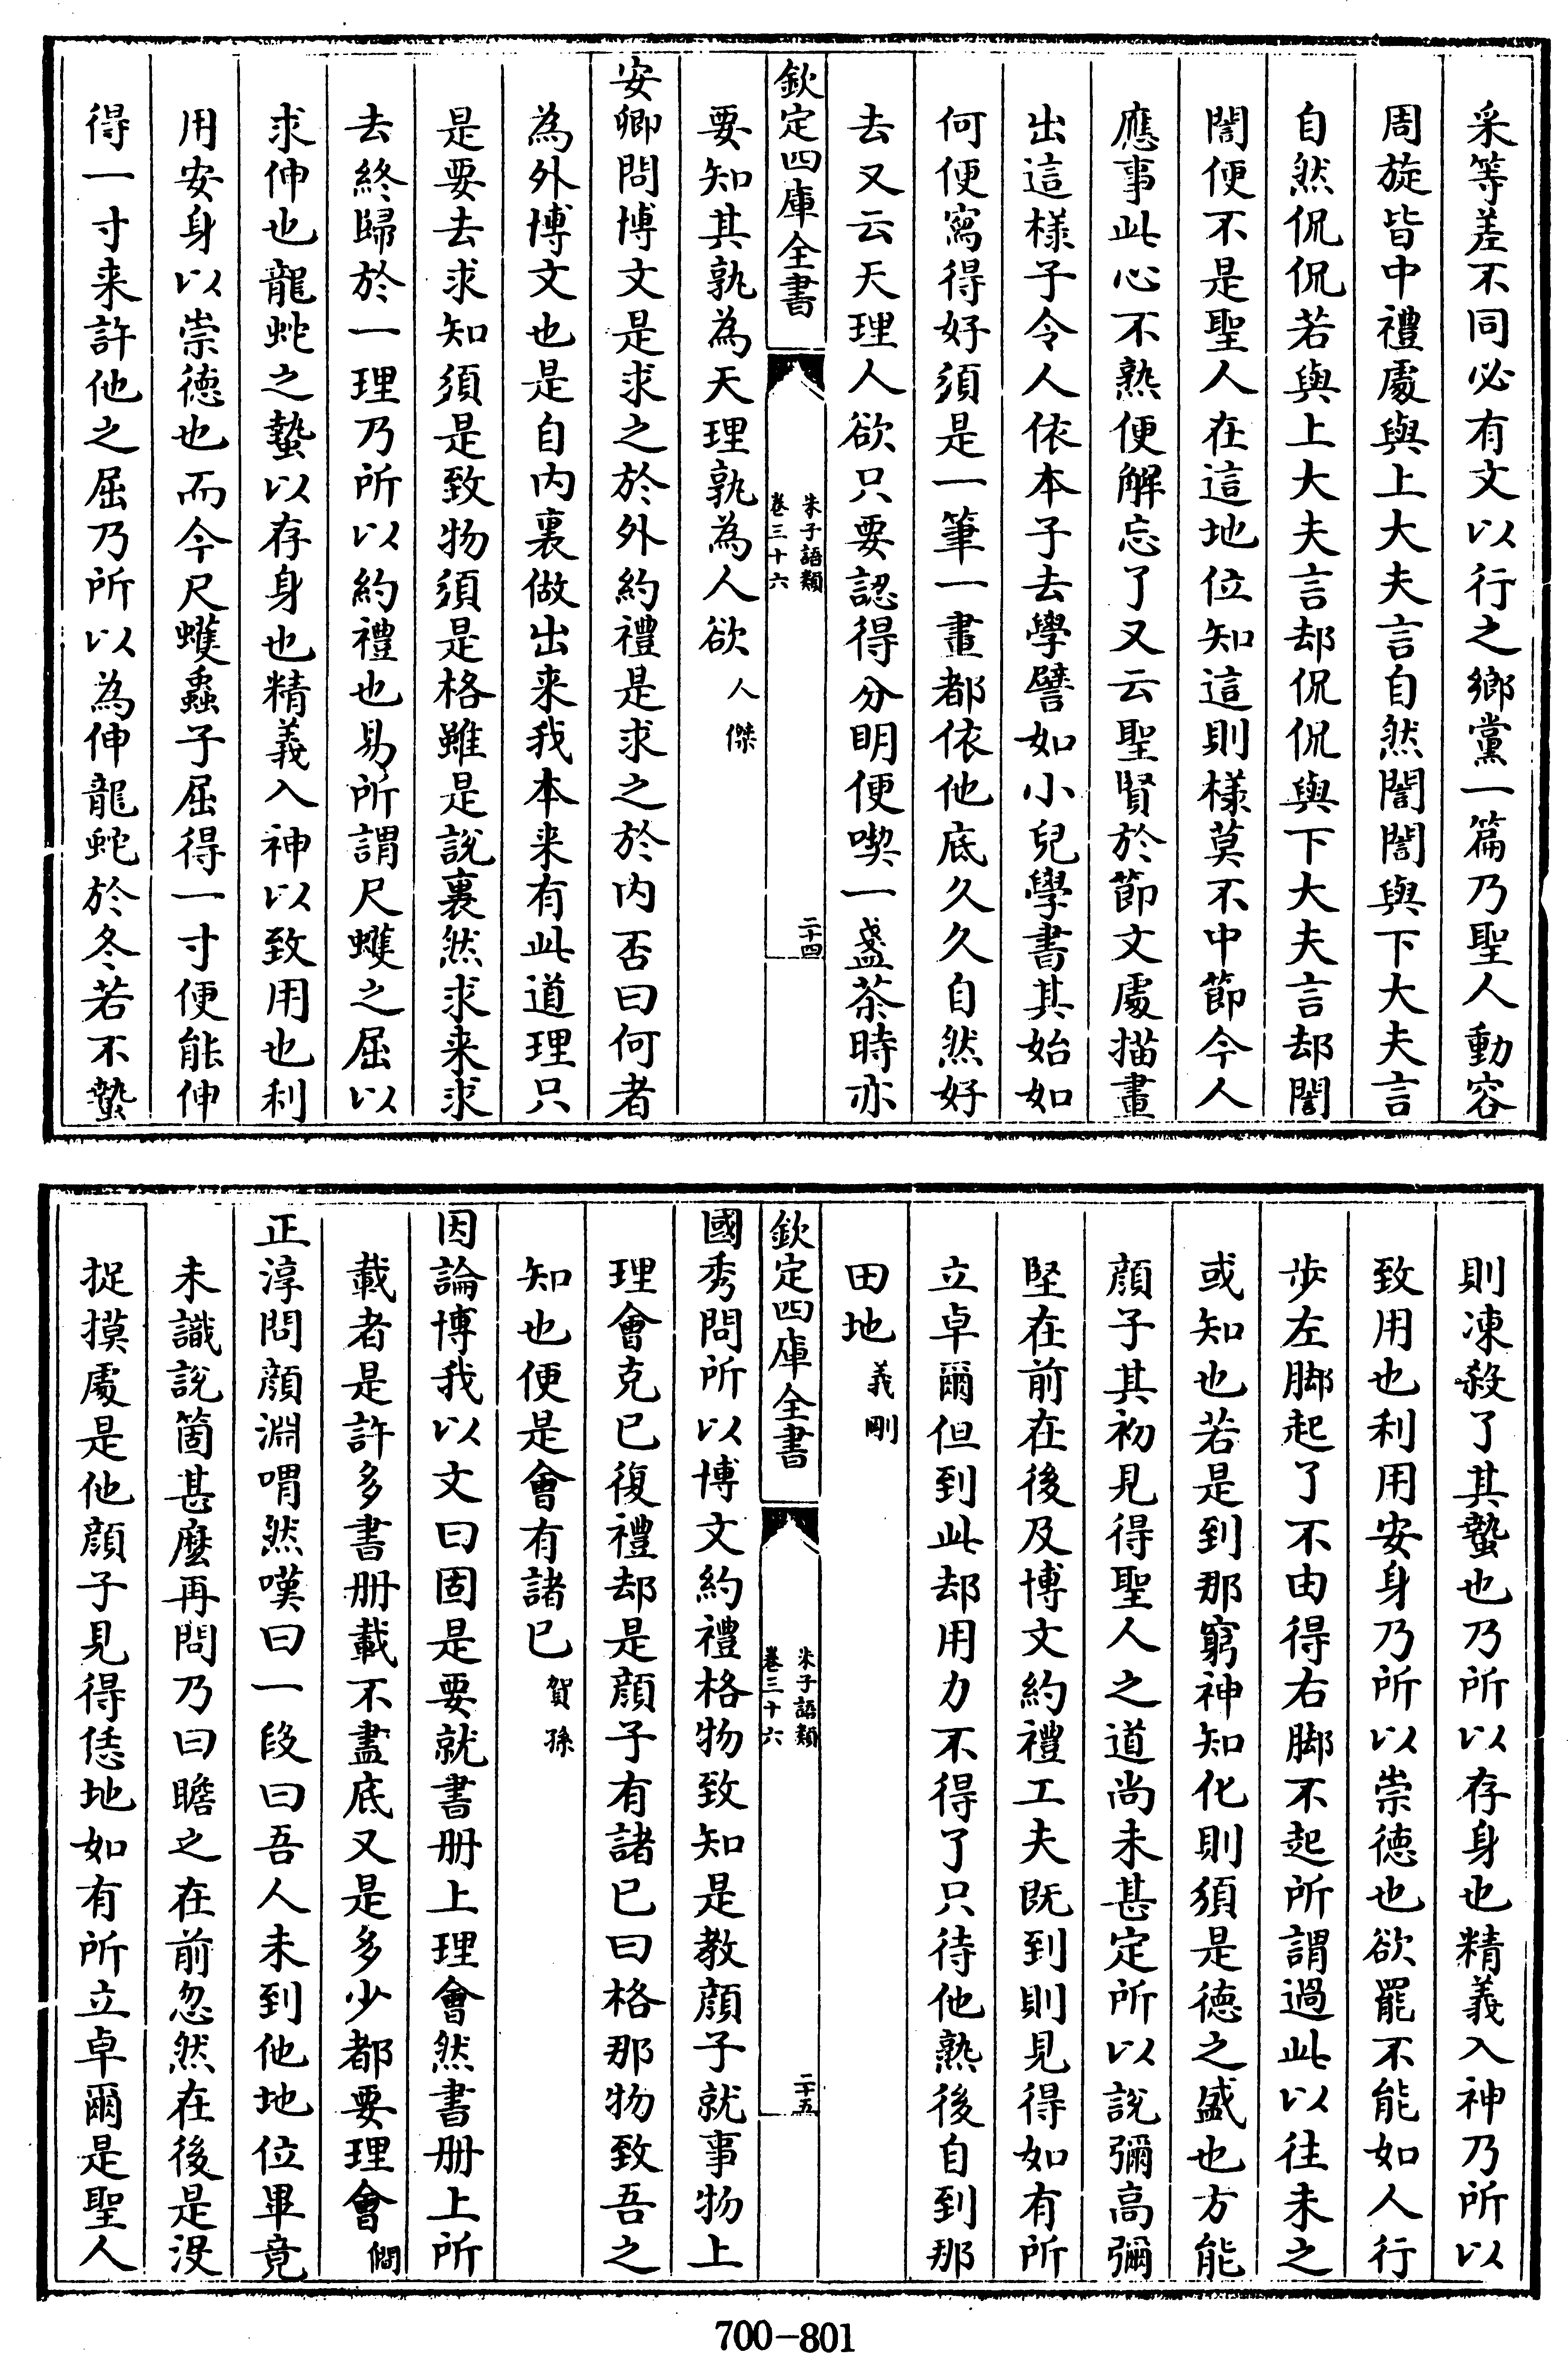 采等差不同必有文以行之鄉黨一篇乃聖人動容
周旋皆中禮處與上大夫言自然誾誾與下大夫言
自然侃侃若與上大夫言却侃侃與下大夫言却誾
誾便不是聖人在這地位知這則様莫不中節今人
應事此心不熟便解忘了又云聖賢於節文處描畫
出這様子令人依本子去學譬如小兒學書其始如
何便寫得好須是一筆一畫都依他底久久自然好
去又云天理人欲只要認得分明便喫一盞茶時亦
欽定四庫全書
朱子語類
卷三十六
二十四
要知其孰為天理孰為人欲 人傑
安卿問博文是求之於外約禮是求之於内否曰何者
為外博文也是自内裏做出来我本来有此道理只
是要去求知須是致物須是格雖是說裏然求来求
去終歸於一理乃所以約禮也易所謂尺蠖之屈以
求伸也龍蛇之蟄以存身也精義入神以致用也利
用安身以崇德也而今尺蠖蟲子屈得一寸便能伸
得一寸来許他之屈乃所以為伸龍蛇於冬若不蟄
則凍殺了其蟄也乃所以存身也精義入神乃所以
致用也利用安身乃所以崇德也欲罷不能如人行
步左脚起了不由得右脚不起所謂過此以往未之
或知也若是到那窮神知化則須是德之盛也方能
顔子其初見得聖人之道尚未甚定所以說彌高彌
堅在前在後及博文約禮工夫既到則見得如有所
立卓爾但到此却用力不得了只待他熟後自到那
田地 義剛
欽定四庫全書
朱子語類
卷三十六
二十五
國秀問所以博文約禮格物致知是教顔子就事物上
理會克已復禮却是顔子有諸已曰格那物致吾之
知也便是會有諸已 賀孫
因論博我以文曰固是要就書册上理會然書册上所
載者是許多書册載不盡底又是多少都要理會 僩
正淳問顔淵喟然嘆曰一段曰吾人未到他地位畢竟
未識說箇甚麽再問乃曰瞻之在前忽然在後是沒
捉摸處是他顔子見得恁地如有所立卓爾是聖人
700-801